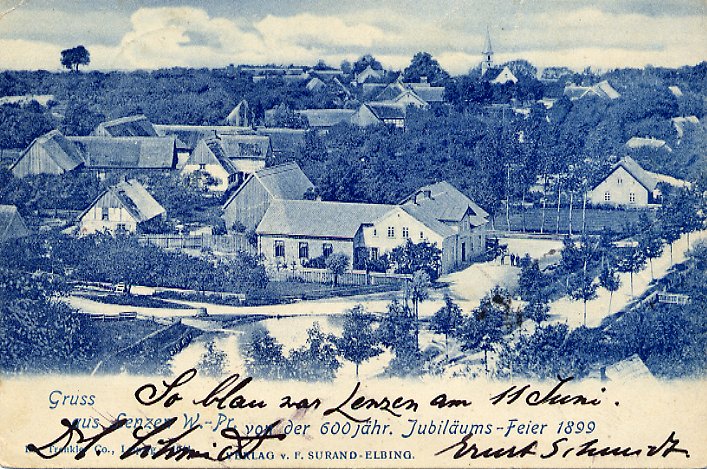 Gruss
So blau war Lenzen am 11 Juni.
aus Lenzen W.-Pr. von der 600jähr. Jubiläums-Feier 1899
Schmidt
Ernst Schmidt
Dr. Trenkler Co., Leipzig
VERLAG v. F. SURAND-ELBING.